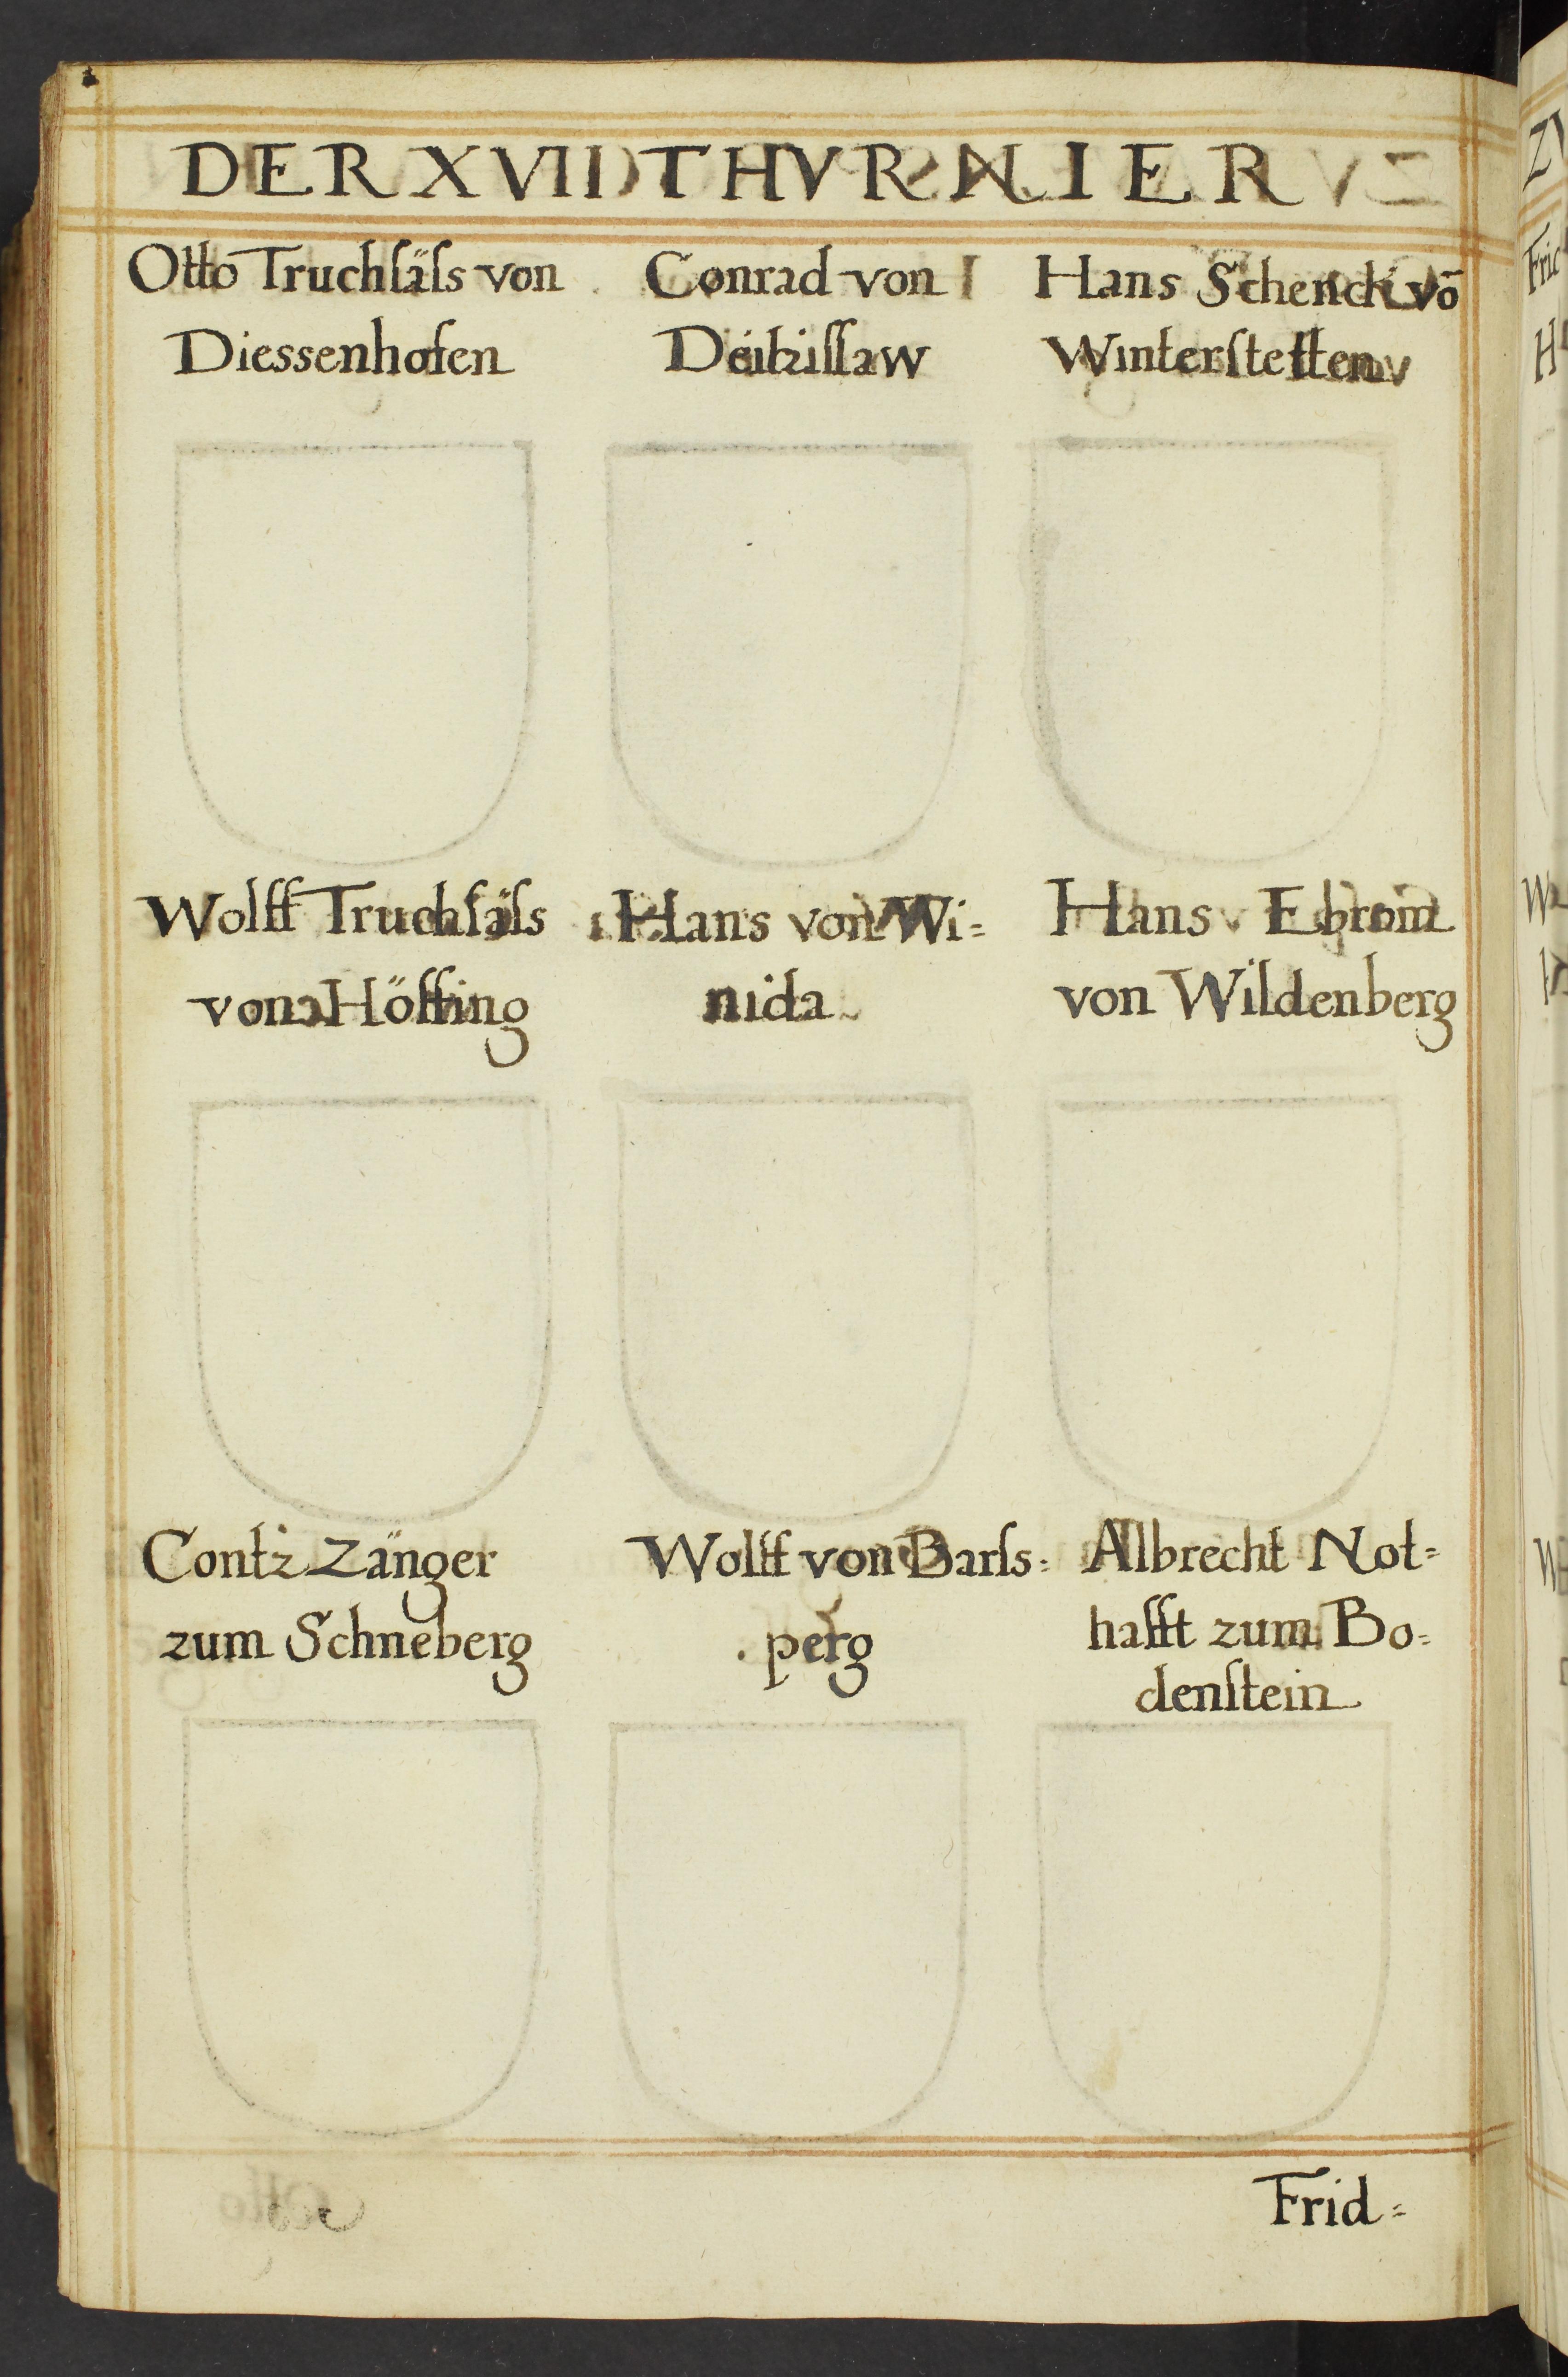 DER XVII THVRNIER
Otto Truchſäſs von
Diessenhofen
Conrad von
Hans Schenck vō
Winterſtetten
Wolff Truchſäſs
von Höffing
Hans von Wi=
nida
Hans Ebron
von Wildenberg
Contz Zänger
zum Schneberg
Wolff von Barſs=
perg
Albrecht Not=
hafft zum Bo=
denſtein
Frid=